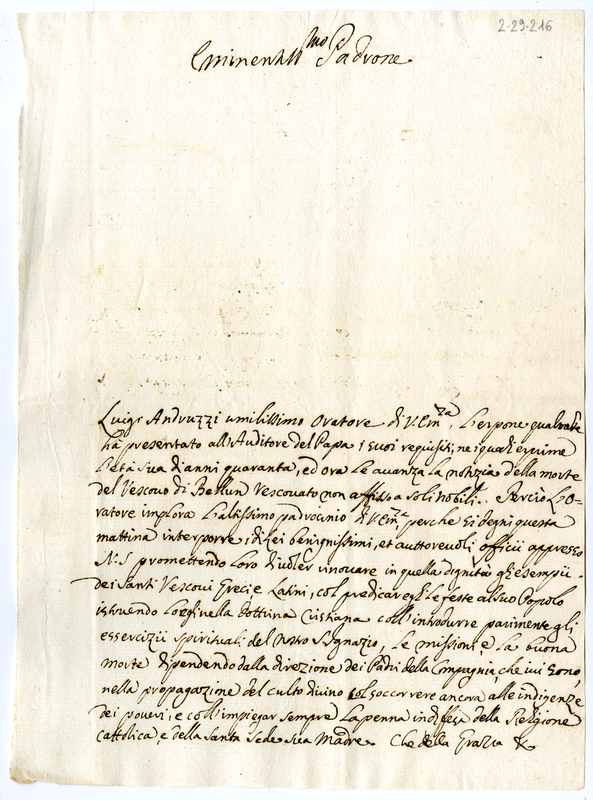 2-29-216
Eminentiss.mo Padrone
Luigi Andruzzi umilissimo Oratore di V. Em.za, L'espone qualmente
ha presentato all'Auditore del Papa i suoi requisiti, ne i quali esprime
l'età sua di anni quaranta, ed ora Le avanza la notizia della morte
del Vescovo di Bellun Vescovato non affisso a soli nobili. Perciò l'O-
ratore implora l'altissimo padrocinio di V. Em.za perche si degni questa
mattina interporre, i di lei benignissimi, et auttorevoli officii appresso
N. S. promettendo Loro di voler rinovare in quella dignità gli esempii
dei Santi Vescovi Greci e Latini, col predicare le feste al suo Popolo
istruendo nella dottrina Cristiana coll'introdurre parimente gli
essercizii spirituali del nostro S. Ignazio, Le missioni, e la buona
morte dipendendo dalla direzione dei Padri della Compagnia, che ivi sono,
nella propagazione del culto divino col soccorrere ancora alle indigenze
dei poveri, e coll'impiegar sempre la penna in difesa della Religione
Cattolica, e della Santa Sede sua Madre. Che della Grazia &